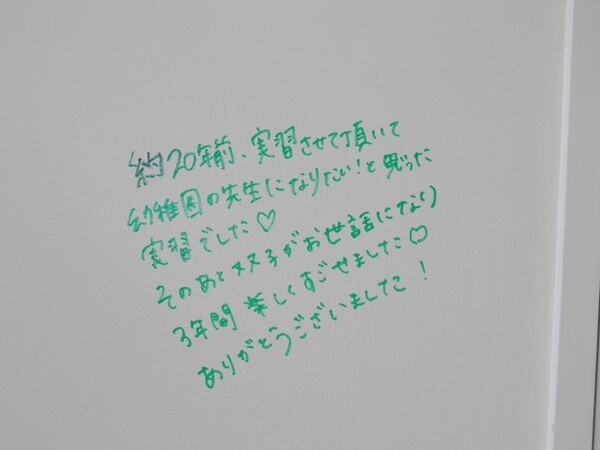 約20年前、実習させて頂いて
幼稚園の先生になりたい!と思った
実習でした♡
そのあと双子がお世話になり
3年間楽しくすごせました♡
ありがとうございました!